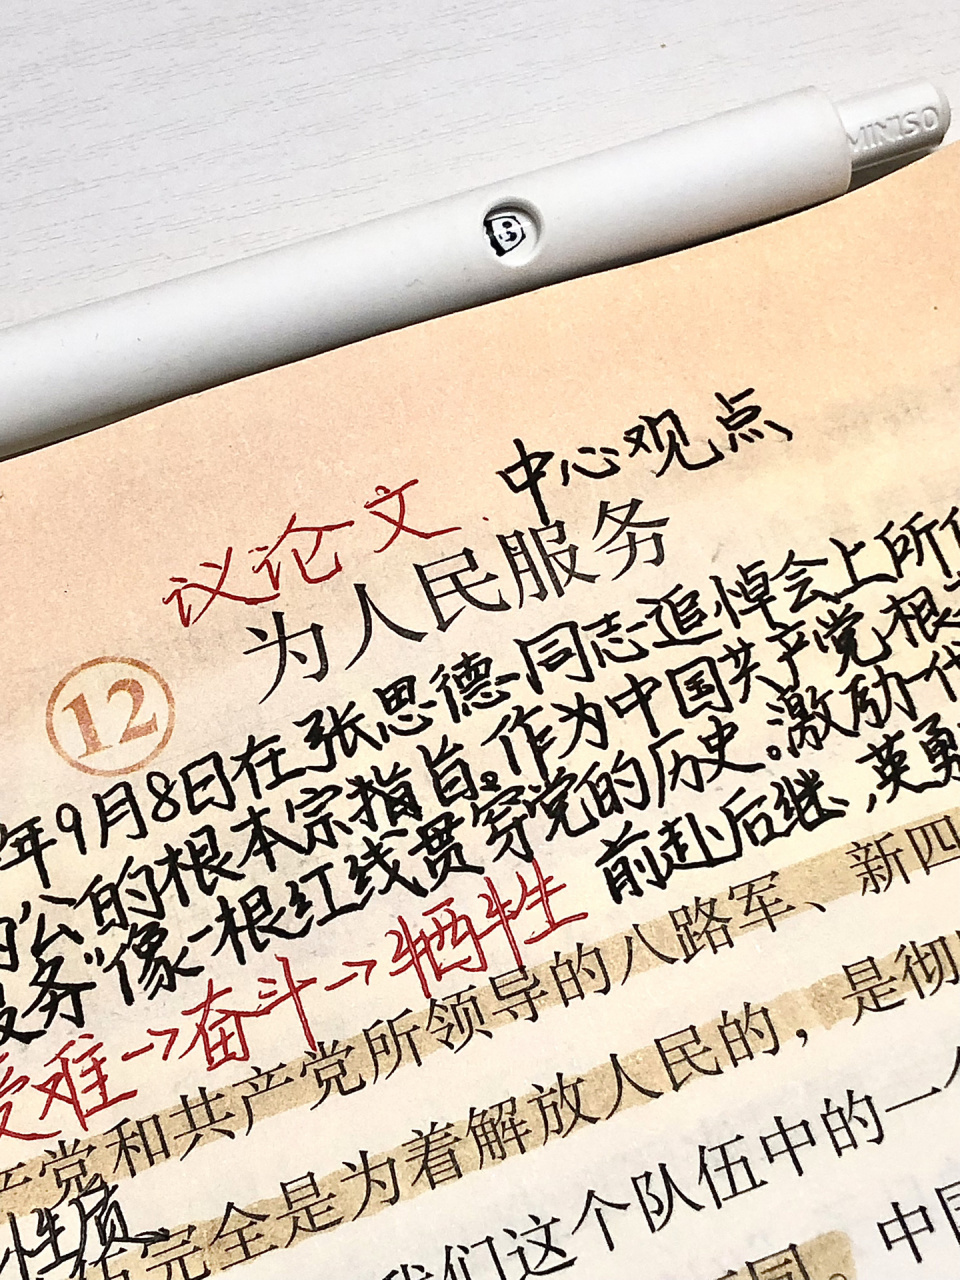 MINISO
中心观点
议论文
为人民服务
12
年9月8日在张思德同志追悼会上所
公的根本宗指旨。作为中国共产党根
务"像一根红线贯穿党的历史。激励一代
前赴后继,英勇
难→奋斗→牺牲
党和共产党所领导的八路军、新四
完全是为着解放人民的,是彻
性质
们这个队伍中的一个
同。中国